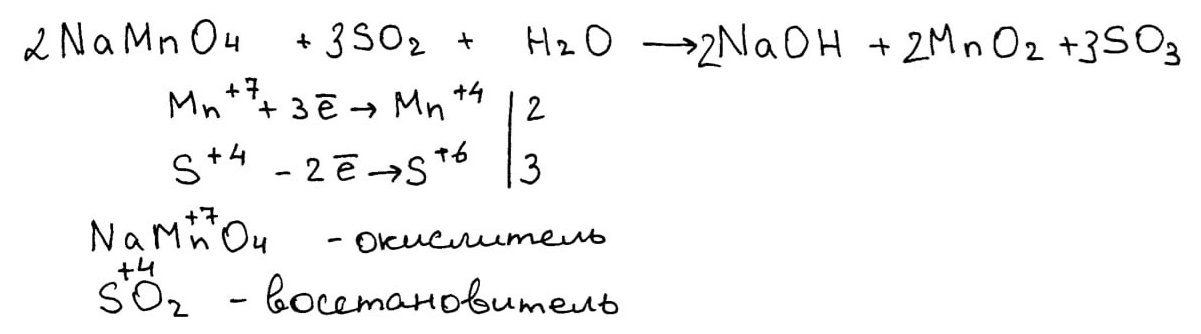 2NaMnO₄ + 3SO₂ + H₂O → 2NaOH + 2MnO₂ + 3SO₃
Mn⁺⁷ + 3ē → Mn⁺⁴ | 2
S⁺⁴ - 2ē → S⁺⁶ | 3
NaMn⁺⁷O₄ - окислитель
S⁺⁴O₂ - восстановитель